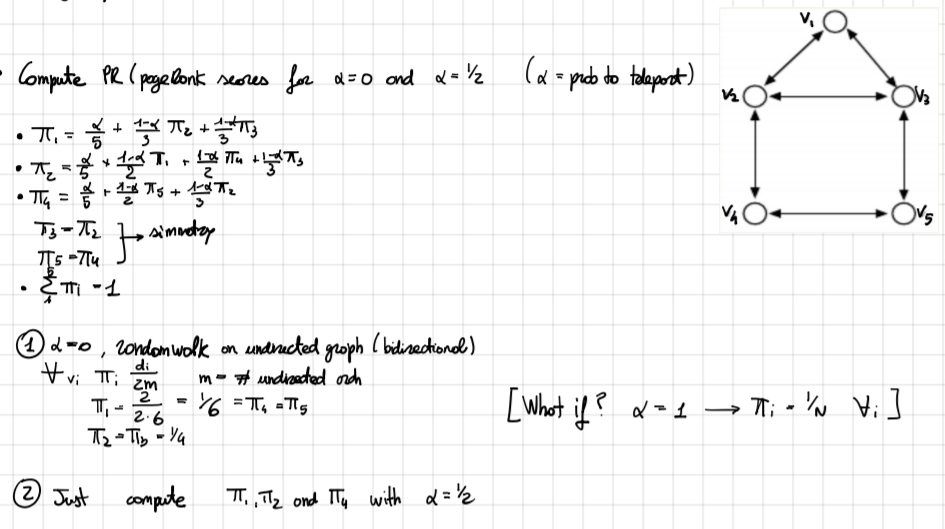 Compute PR (pageRank scores for α=0 and α=1/2 (α = prob to teleport)
• π₁ = α/5 + 1-α/3 π₂ + 1-α/3 π₃
• π₂ = α/5 + 1-α/2 π₁ + 1-α/2 π₄ + 1-α/3 π₃
• π₄ = α/5 + 1-α/2 π₅ + 1-α/3 π₂
π₃ = π₂
π₅ = π₄
} → simmetry
• Σ πi = 1
① α=0, randomwalk on undirected graph (bidirectional)
∀ vi πi di/2m m = # undirected arch
π₁ = 2/2·6 = 1/6 = π₄ = π₅
π₂ = π₃ = 1/4
[What if? α = 1 → πi = 1/N ∀i]
② Just compute π₁, π₂ and π₄ with α = 1/2
V₁
V₂ V₃
V₄ V₅